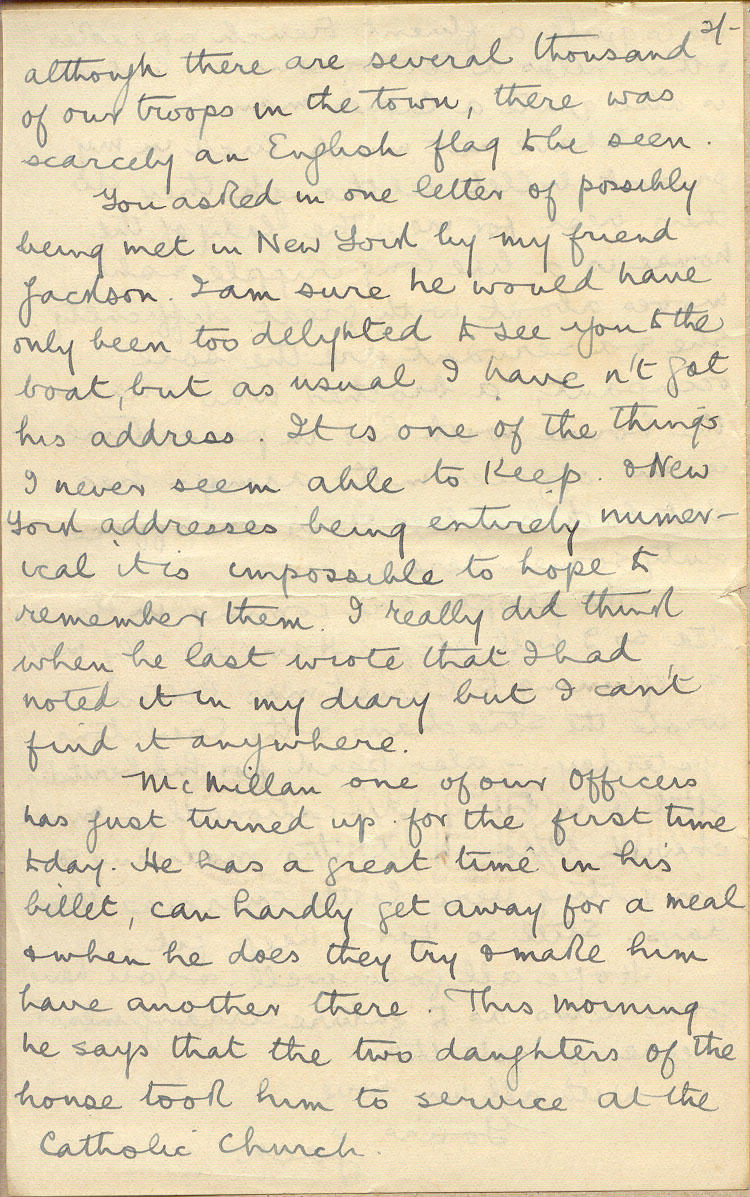 2/-
although there are several thousand
of our troops in the town, there was
scarcely an English flag to be seen.
You asked in one letter of possibly
being met in New York by my friend
Jackson. I am sure he would have
only been too delighted to see you to the
boat, but as usual I have n't got
his address. It is one of the things
I never seem able to keep. & New
York addresses being entirely numer-
ical it is impossible to hope to
remember them. I really did think
when he last wrote that I had
noted it in my diary but I can't
find it anywhere.
McMillan one of our Officers
has just turned up for the first time
today. He has a great time in his
billet, can hardly get away for a meal
& when he does they try & make him
have another there. This morning
he says that the two daughters of the
house took him to service at the
Catholic Church.